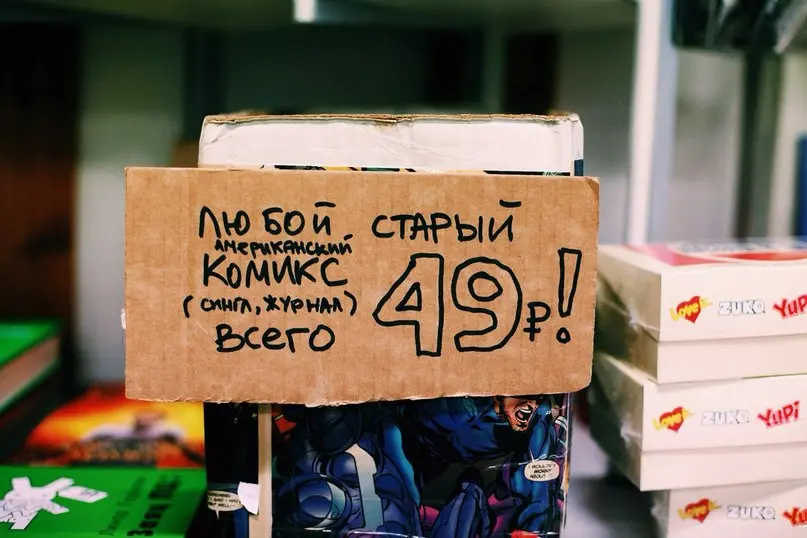 ЛЮБОЙ СТАРЫЙ
АМЕРИКАНСКИЙ
КОМИКС
(СИНГЛ, ЖУРНАЛ)
ВСЕГО
49₽!
LOVE ZUKO YUPI
LOVE ZUKO YUPI
LOVE ZUKO
I WOULDN'T
WORRY
ABOUT